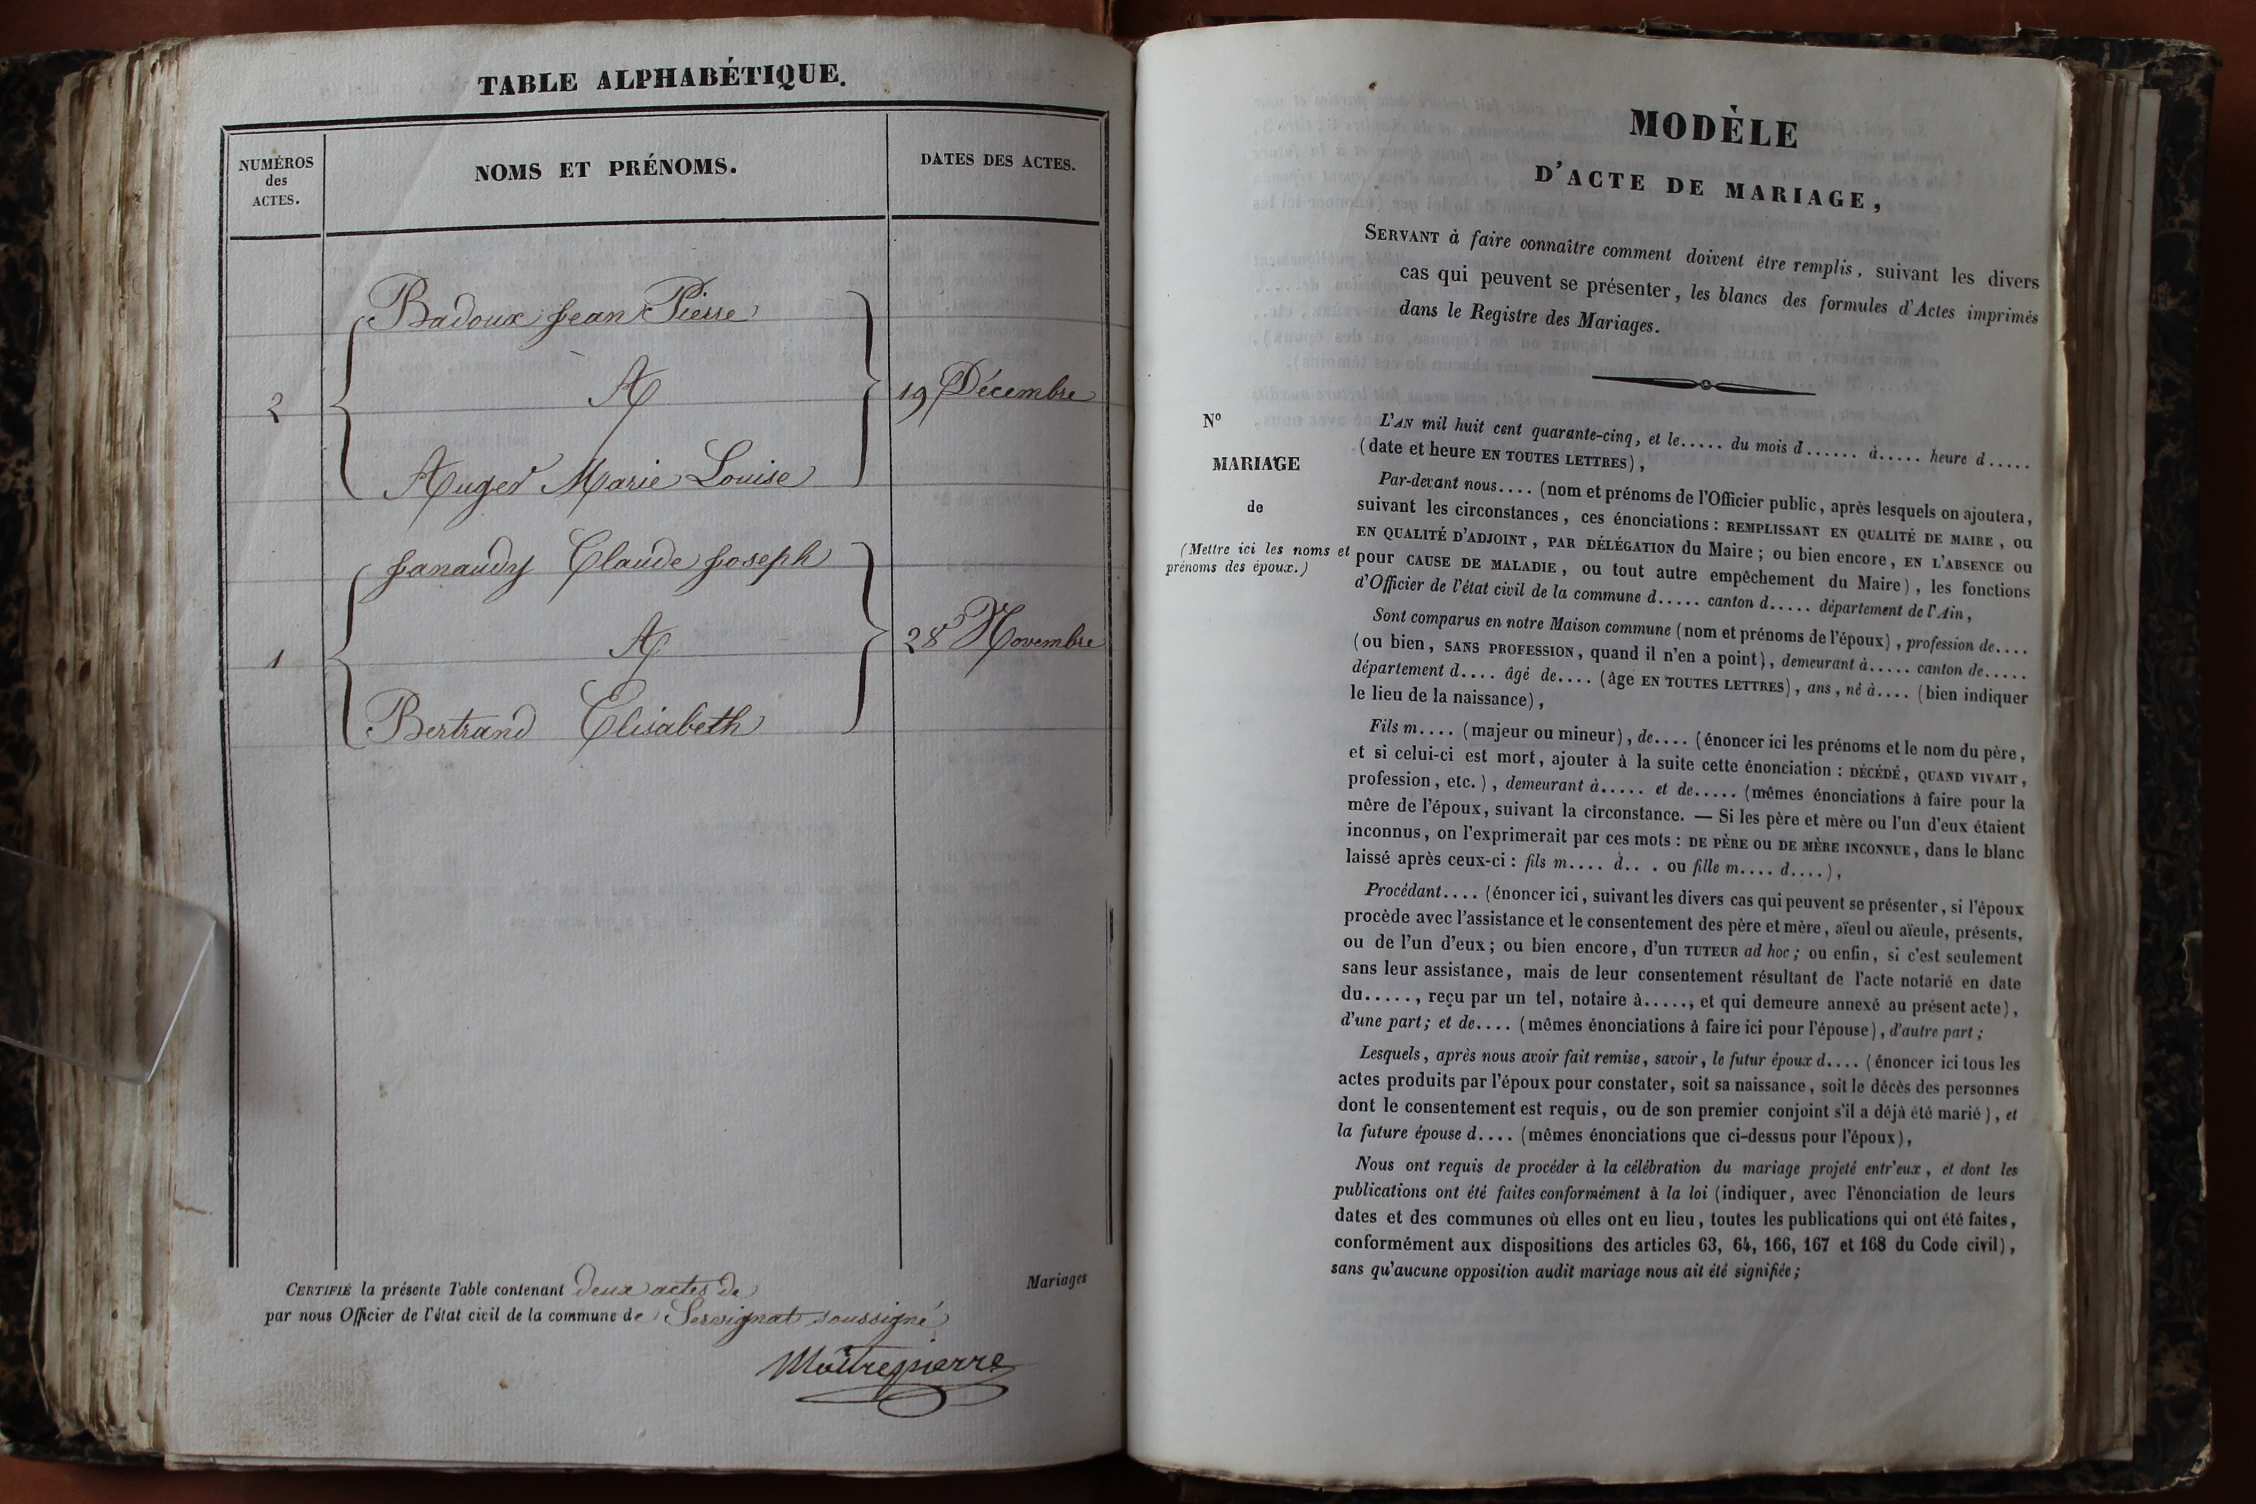 TABLE ALPHABÉTIQUE.
NUMÉROS
des
ACTES.
NOMS ET PRÉNOMS.
DATES DES ACTES.
Badoux Jean Pierre
A
2
19 Décembre
Auger Marie Louise
Janaudy Claude Joseph
A
1
28 Novembre
Bertrand Elisabeth
CERTIFIÉ la présente Table contenant deux actes de Mariages
par nous Officier de l'état civil de la commune de Servignat soussigné
Maîtrepierre
MODÈLE
D'ACTE DE MARIAGE,
SERVANT à faire connaître comment doivent être remplis, suivant les divers
cas qui peuvent se présenter, les blancs des formules d'Actes imprimés
dans le Registre des Mariages.
N°
MARIAGE
de
(Mettre ici les noms et
prénoms des époux.)
L'AN mil huit cent quarante-cinq, et le..... du mois d...... à..... heure d.....
(date et heure EN TOUTES LETTRES),
Par-devant nous.... (nom et prénoms de l'Officier public, après lesquels on ajoutera,
suivant les circonstances, ces énonciations : REMPLISSANT EN QUALITÉ DE MAIRE, ou
EN QUALITÉ D'ADJOINT, PAR DÉLÉGATION du Maire ; ou bien encore, EN L'ABSENCE ou
pour CAUSE DE MALADIE, ou tout autre empêchement du Maire), les fonctions
d'Officier de l'état civil de la commune d..... canton d..... département de l'Ain,
Sont comparus en notre Maison commune (nom et prénoms de l'époux), profession de....
(ou bien, SANS PROFESSION, quand il n'en a point), demeurant à..... canton de.....
département d.... âgé de.... (âge EN TOUTES LETTRES), ans, né à.... (bien indiquer
le lieu de la naissance),
Fils m.... (majeur ou mineur), de.... (énoncer ici les prénoms et le nom du père,
et si celui-ci est mort, ajouter à la suite cette énonciation : DÉCÉDÉ, QUAND VIVAIT,
profession, etc.), demeurant à..... et de..... (mêmes énonciations à faire pour la
mère de l'époux, suivant la circonstance. — Si les père et mère ou l'un d'eux étaient
inconnus, on l'exprimerait par ces mots : DE PÈRE ou DE MÈRE INCONNUE, dans le blanc
laissé après ceux-ci : fils m.... d... ou fille m.... d....),
Procédant.... (énoncer ici, suivant les divers cas qui peuvent se présenter, si l'époux
procède avec l'assistance et le consentement des père et mère, aïeul ou aïeule, présents,
ou de l'un d'eux ; ou bien encore, d'un TUTEUR ad hoc ; ou enfin, si c'est seulement
sans leur assistance, mais de leur consentement résultant de l'acte notarié en date
du....., reçu par un tel, notaire à....., et qui demeure annexé au présent acte),
d'une part ; et de.... (mêmes énonciations à faire ici pour l'épouse), d'autre part ;
Lesquels, après nous avoir fait remise, savoir, le futur époux d.... (énoncer ici tous les
actes produits par l'époux pour constater, soit sa naissance, soit le décès des personnes
dont le consentement est requis, ou de son premier conjoint s'il a déjà été marié), et
la future épouse d.... (mêmes énonciations que ci-dessus pour l'époux),
Nous ont requis de procéder à la célébration du mariage projeté entr'eux, et dont les
publications ont été faites conformément à la loi (indiquer, avec l'énonciation de leurs
dates et des communes où elles ont eu lieu, toutes les publications qui ont été faites,
conformément aux dispositions des articles 63, 64, 166, 167 et 168 du Code civil),
sans qu'aucune opposition audit mariage nous ait été signifiée ;